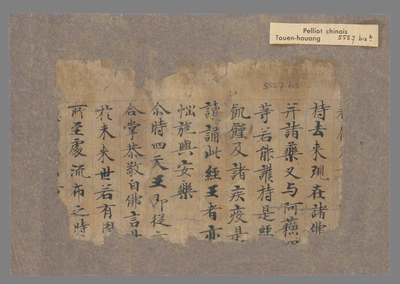 Pelliot chinois
Touen-houang 5557 bis 2
5557 bis
持去来現在諸佛
并諸藥叉与阿蘓
等若能護持是經
飢饉及諸疾疫是
讀誦此經王者亦
惱施與安樂
尒時四天王即従
合掌恭敬白佛言
扵未来世若有國
所至處流布之時